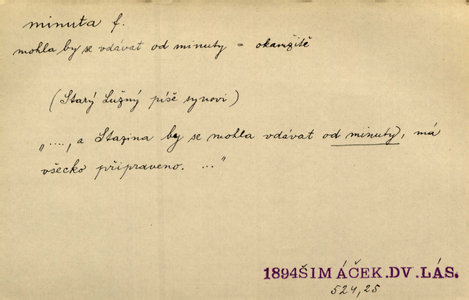 minuta f.
mohla by se vdávat od minuty = okamžitě
(Starý Lužný píše synovi)
„...., a Stazina by se mohla vdávat od minuty, má
všecko připraveno. ..."
1894 ŠIMÁČEK. DV. LÁS.
524,25